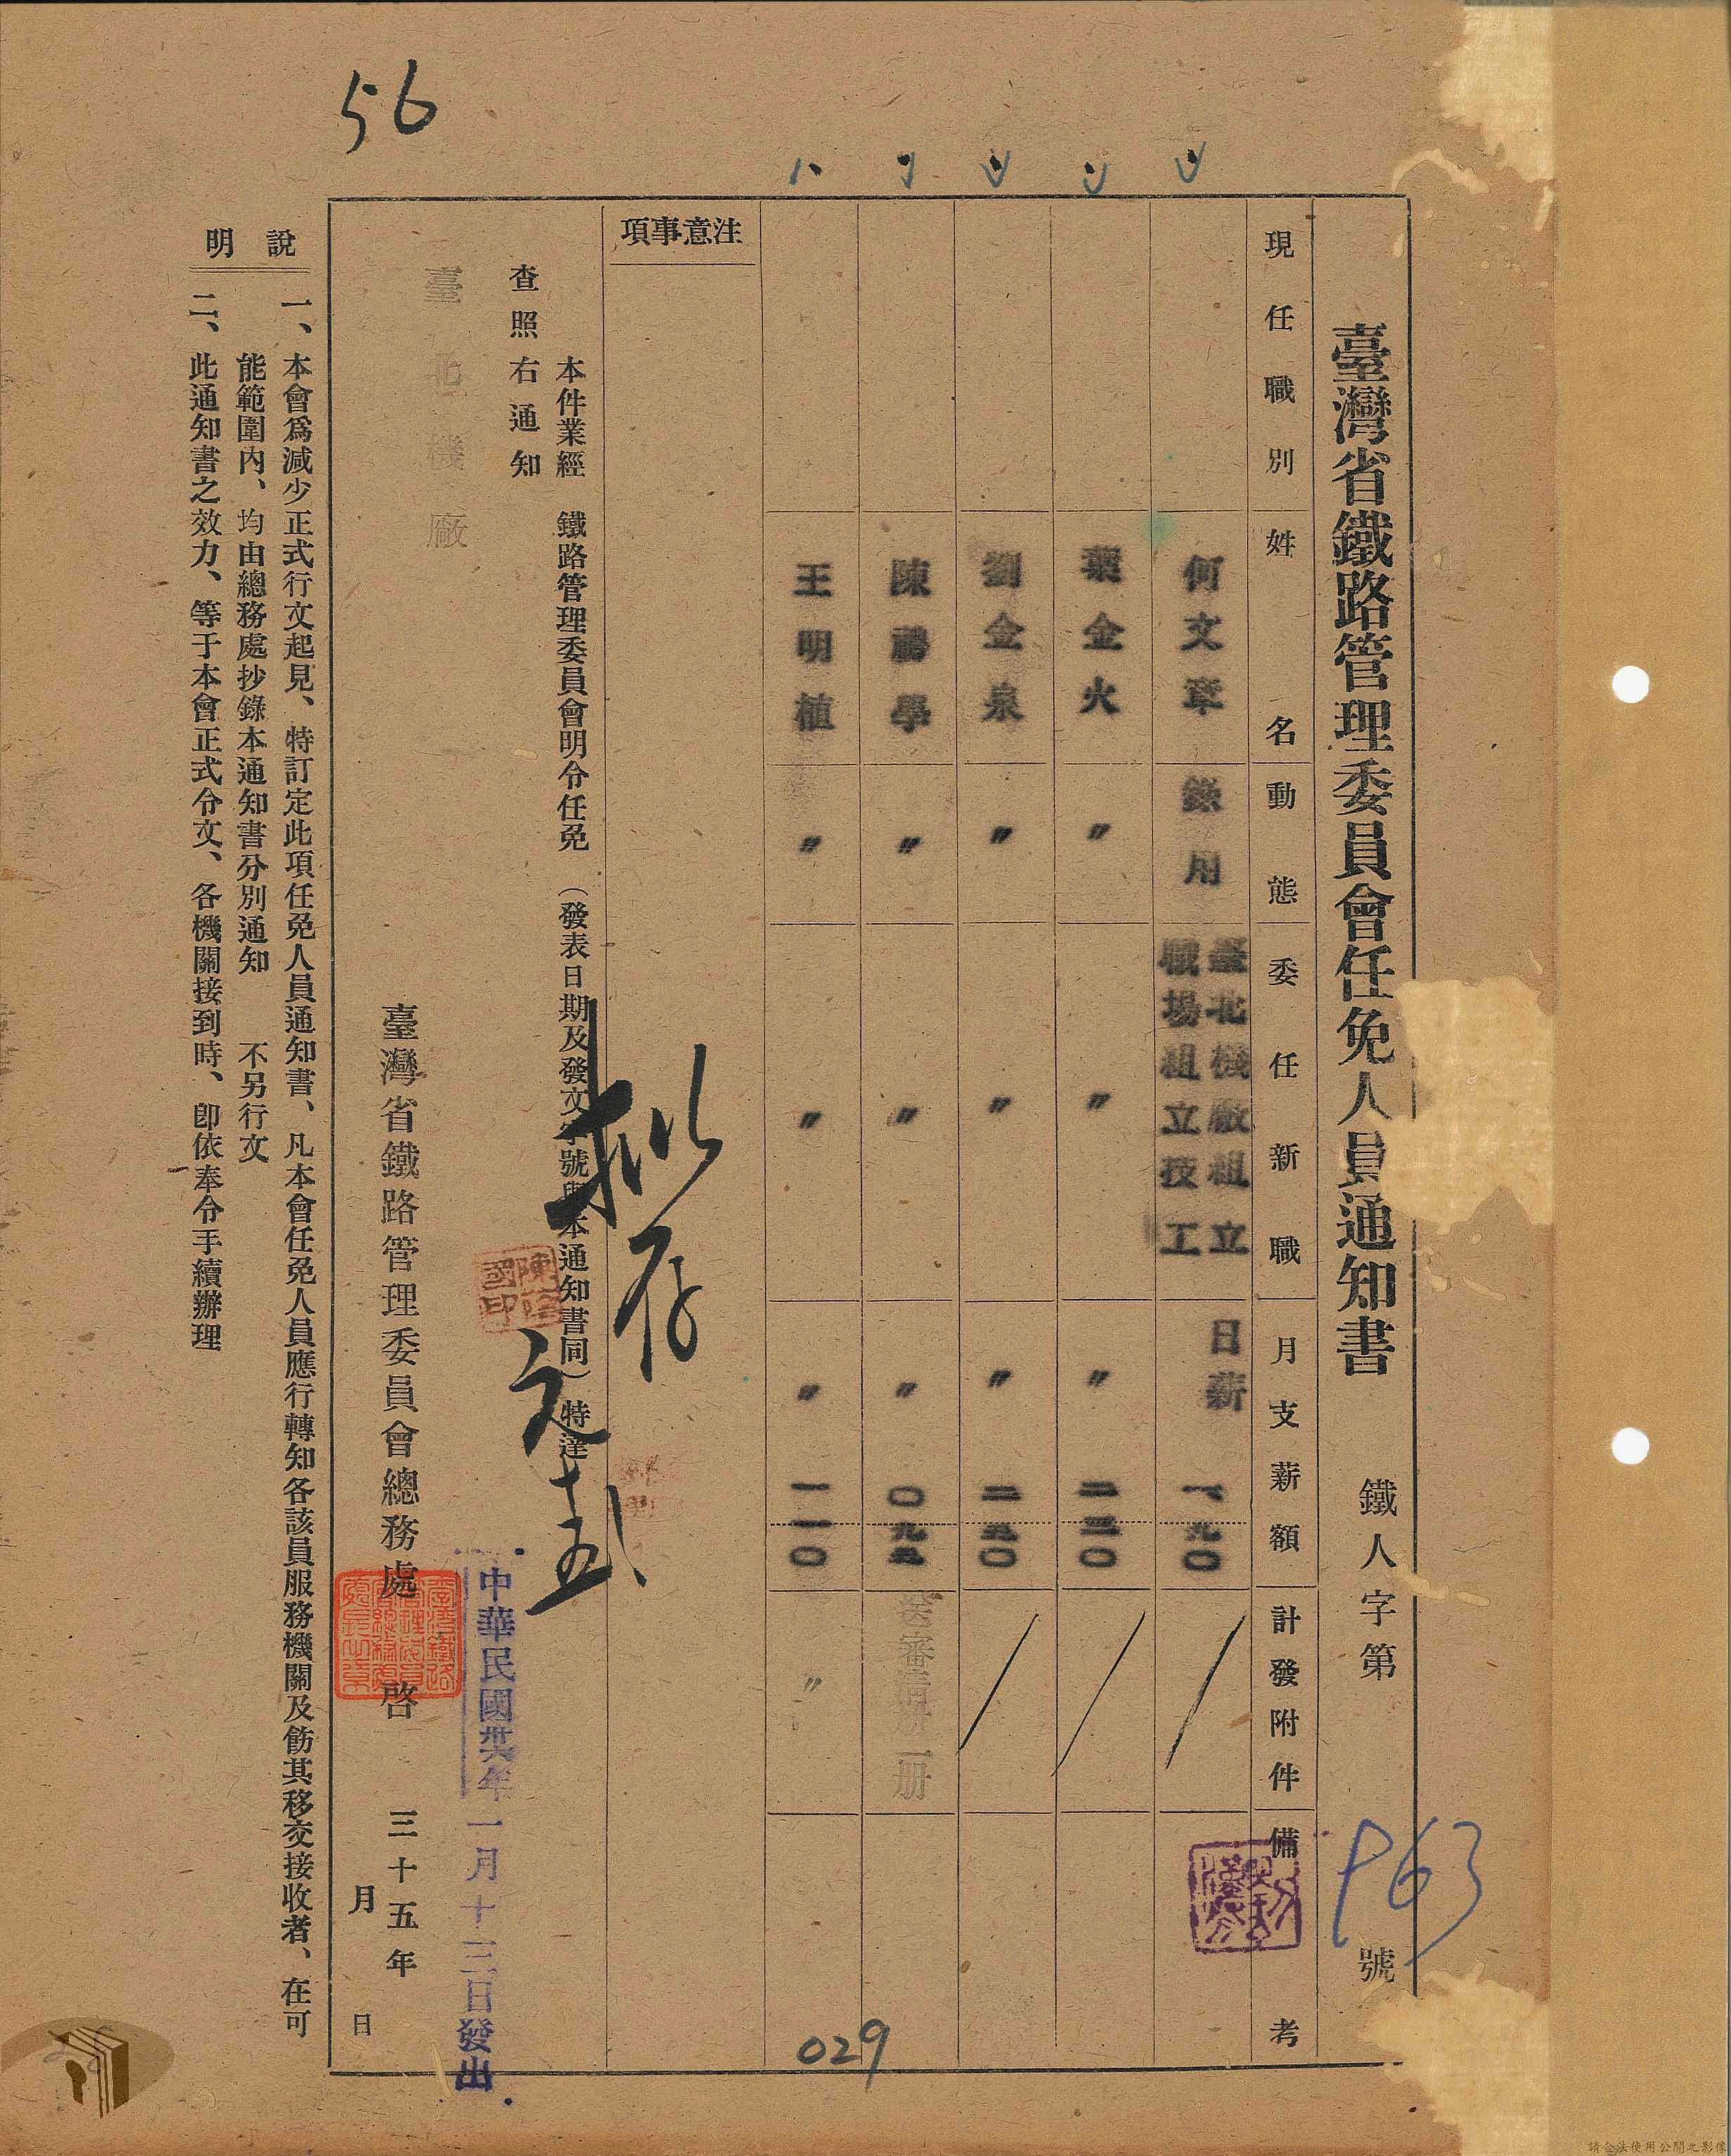 56
臺灣省鐵路管理委員會任免人員通知書 鐵人字第963號
現任職別 姓名 動態 委任新職 月支薪額 計發附件 備考
何文章 錄用 臺北機廠組立職場組立技工 日薪 一、九〇
葉金火 〃 〃 〃 二三〇
劉金泉 〃 〃 〃
陳勝學 〃 〃 〃 〇九二
王明植 〃 〃 〃 一一〇 〃
029
注意事項
擬存
本件業經 鐵路管理委員會明令任免 (發表日期及發文字號與本通知書同) 特達
查照右通知
臺北機廠
中華民國卅六年一月十三日發出
臺灣省鐵路管理委員會總務處 啓 三十五年
月 日
說明
一、本會爲減少正式行文起見、特訂定此項任免人員通知書、凡本會任免人員應行轉知各該員服務機關及飭其移交接收者、在可
能範圍內、均由總務處抄錄本通知書分別通知 不另行文
二、此通知書之效力、等于本會正式令文、各機關接到時、卽依奉令手續辦理
請合法使用公開之影像